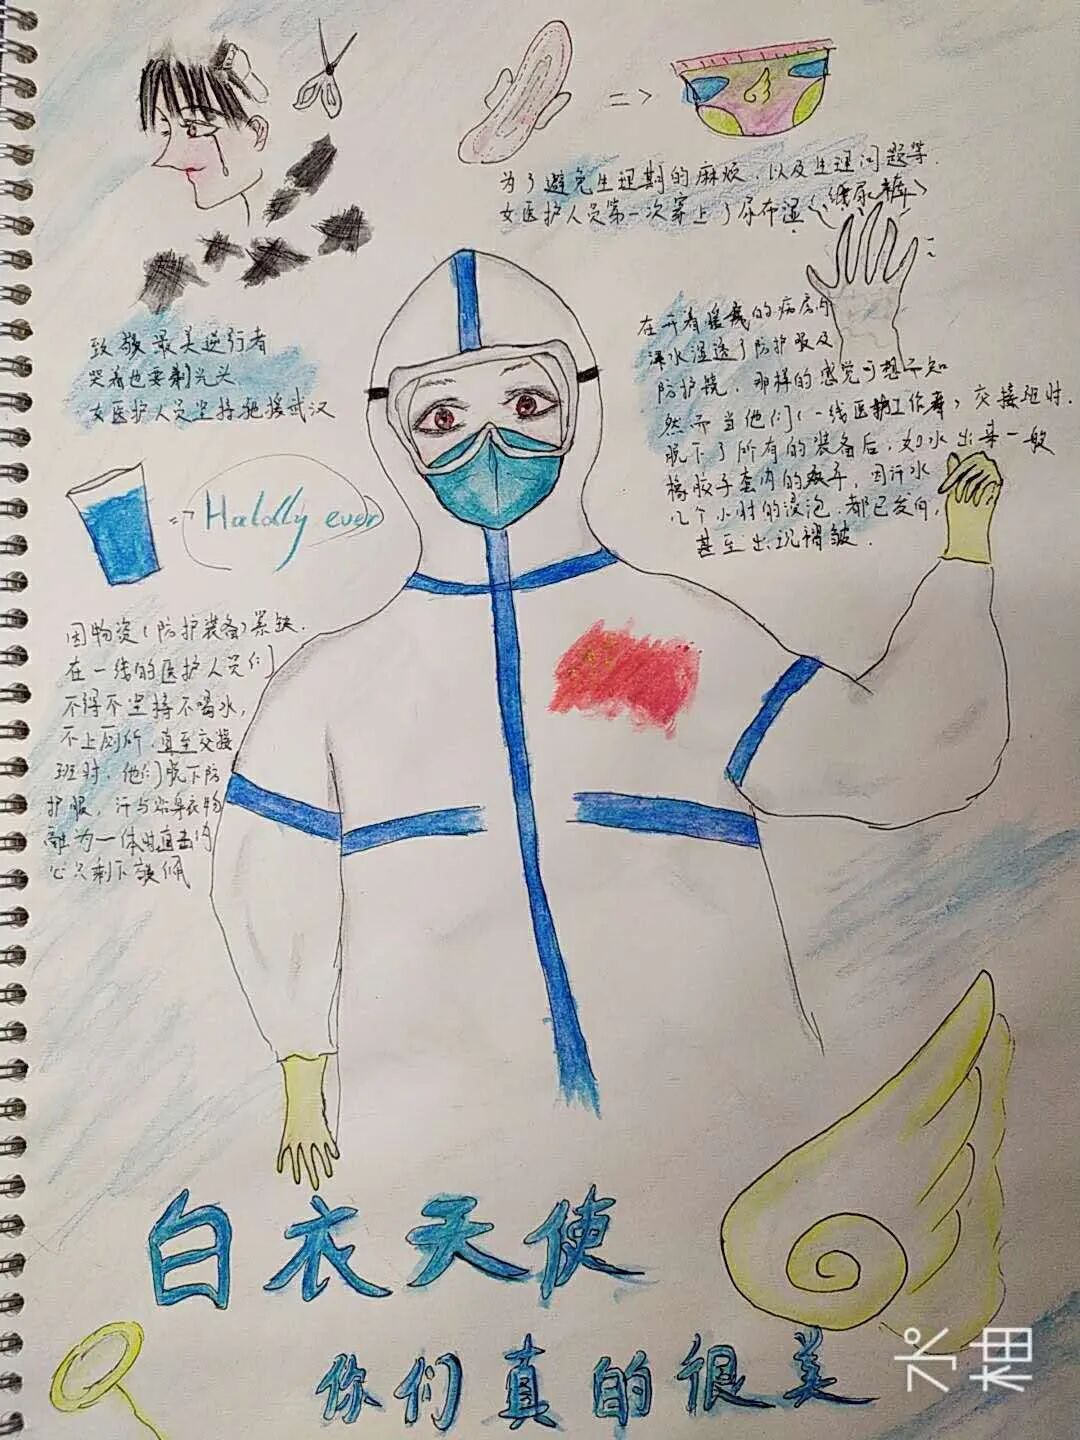 为了避免生理期的麻烦，以及生理问题等.
女医护人员第一次穿上了尿布湿.(纸尿裤)
致敬最美逆行者
哭着也要剃光头.
女医护人员坚持驰援武汉
在开着暖气的病房内
汗水湿透了防护服及
防护镜，那样的感觉可想不知
然而当他们(一线医护工作者)交接班时.
脱下了所有的装备后，如水出来一般
橡胶手套内的双手，因汗水
几个小时的浸泡.都已发白，
甚至出现褶皱.
Halolly ever
因物资(防护装备)紧缺.
在一线的医护人员们
不得不坚持不喝水，
不上厕所.直至交接
班时.他们脱下防
护服，汗与贴身衣物
融为一体时直击内
心只剩下钦佩
白衣天使
你们真的很美